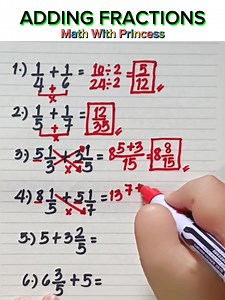 ADDING FRACTIONS
Math With Princess
1.) 1/4 + 1/6 = 10÷2/24÷2 = 5/12
2.) 1/5 + 1/7 = 12/35
3.) 5 1/3 + 3 1/5 = 8 5+3/15 = 8 8/15
4.) 8 1/5 + 5 1/7 = 13 7+
5.) 5 + 3 2/5 =
6.) 6 3/5 + 5 =